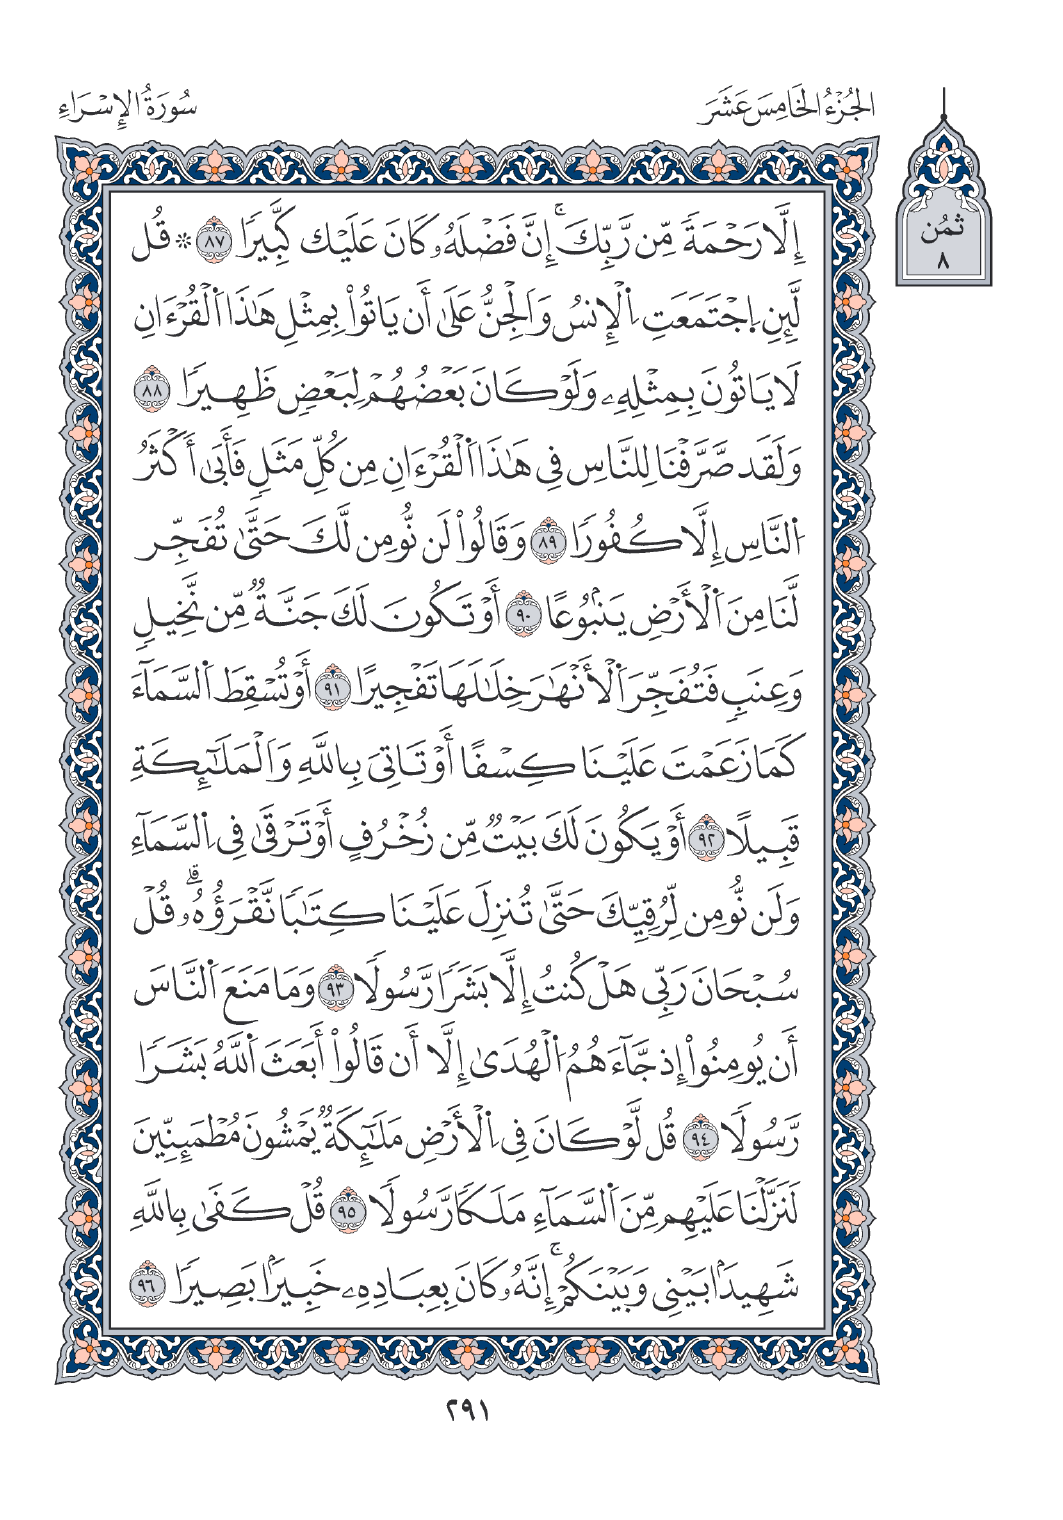 سُورَةُ الإِسْرَاءِ
الجُزْءُ الخَامِسَ عَشَرَ
ثُمُن
٨
إِلَّا رَحْمَةً مِّن رَّبِّكَۚ إِنَّ فَضْلَهُۥ كَانَ عَلَيْكَ كَبِيرًا ٨٧ * قُل
لَّئِنِ اِجْتَمَعَتِ اِ۬لْإِنسُ وَالْجِنُّ عَلَىٰ أَن يَاتُواْ بِمِثْلِ هَٰذَا اَ۬لْقُرْءَانِ
لَا يَاتُونَ بِمِثْلِهِۦ وَلَوْ كَانَ بَعْضُهُمْ لِبَعْضٍ ظَهِيرًا ٨٨
وَلَقَد صَّرَّفْنَا لِلنَّاسِ فِي هَٰذَا اَ۬لْقُرْءَانِ مِن كُلِّ مَثَلٍ فَأَبَىٰ أَكْثَرُ
اُ۬لنَّاسِ إِلَّا كُفُورًا ٨٩ وَقَالُواْ لَن نُّومِن لَّكَ حَتَّىٰ تُفَجِّر
لَّنَا مِنَ اَ۬لْأَرْضِ يَنۢبُوعًا ٩٠ أَوْ تَكُونَ لَكَ جَنَّةٌ مِّن نَّخِيلٍ
وَعِنَبٍ فَتُفَجِّرَ اَ۬لْأَنْهَٰرَ خِلَٰلَهَا تَفْجِيرًا ٩١ أَوْ تُسْقِطَ اَ۬لسَّمَآءَ
كَمَا زَعَمْتَ عَلَيْنَا كِسْفًا أَوْ تَاتِيَ بِاللَّهِ وَالْمَلَٰٓئِكَةِ
قَبِيلًا ٩٢ أَوْ يَكُونَ لَكَ بَيْتٌ مِّن زُخْرُفٍ أَوْ تَرْقَىٰ فِي اِ۬لسَّمَآءِ
وَلَن نُّومِن لِّرُقِيِّكَ حَتَّىٰ تُنزِلَ عَلَيْنَا كِتَٰبًا نَّقْرَؤُهُۥۗ قُلْ
سُبْحَانَ رَبِّي هَلْ كُنتُ إِلَّا بَشَرًا رَّسُولًا ٩٣ وَمَا مَنَعَ اَ۬لنَّاسَ
أَن يُومِنُواْ إِذ جَّآءَهُمُ اُ۬لْهُدَىٰ إِلَّا أَن قَالُواْ أَبَعَثَ اَ۬للَّهُ بَشَرًا
رَّسُولًا ٩٤ قُل لَّوْ كَانَ فِي اِ۬لْأَرْضِ مَلَٰٓئِكَةٌ يَمْشُونَ مُطْمَئِنِّينَ
لَنَزَّلْنَا عَلَيْهِم مِّنَ اَ۬لسَّمَآءِ مَلَكًا رَّسُولًا ٩٥ قُلْ كَفَىٰ بِاللَّهِ
شَهِيدًۢا بَيْنِي وَبَيْنَكُمْۚ إِنَّهُۥ كَانَ بِعِبَادِهِۦ خَبِيرًۢا بَصِيرًا ٩٦
٢٩١